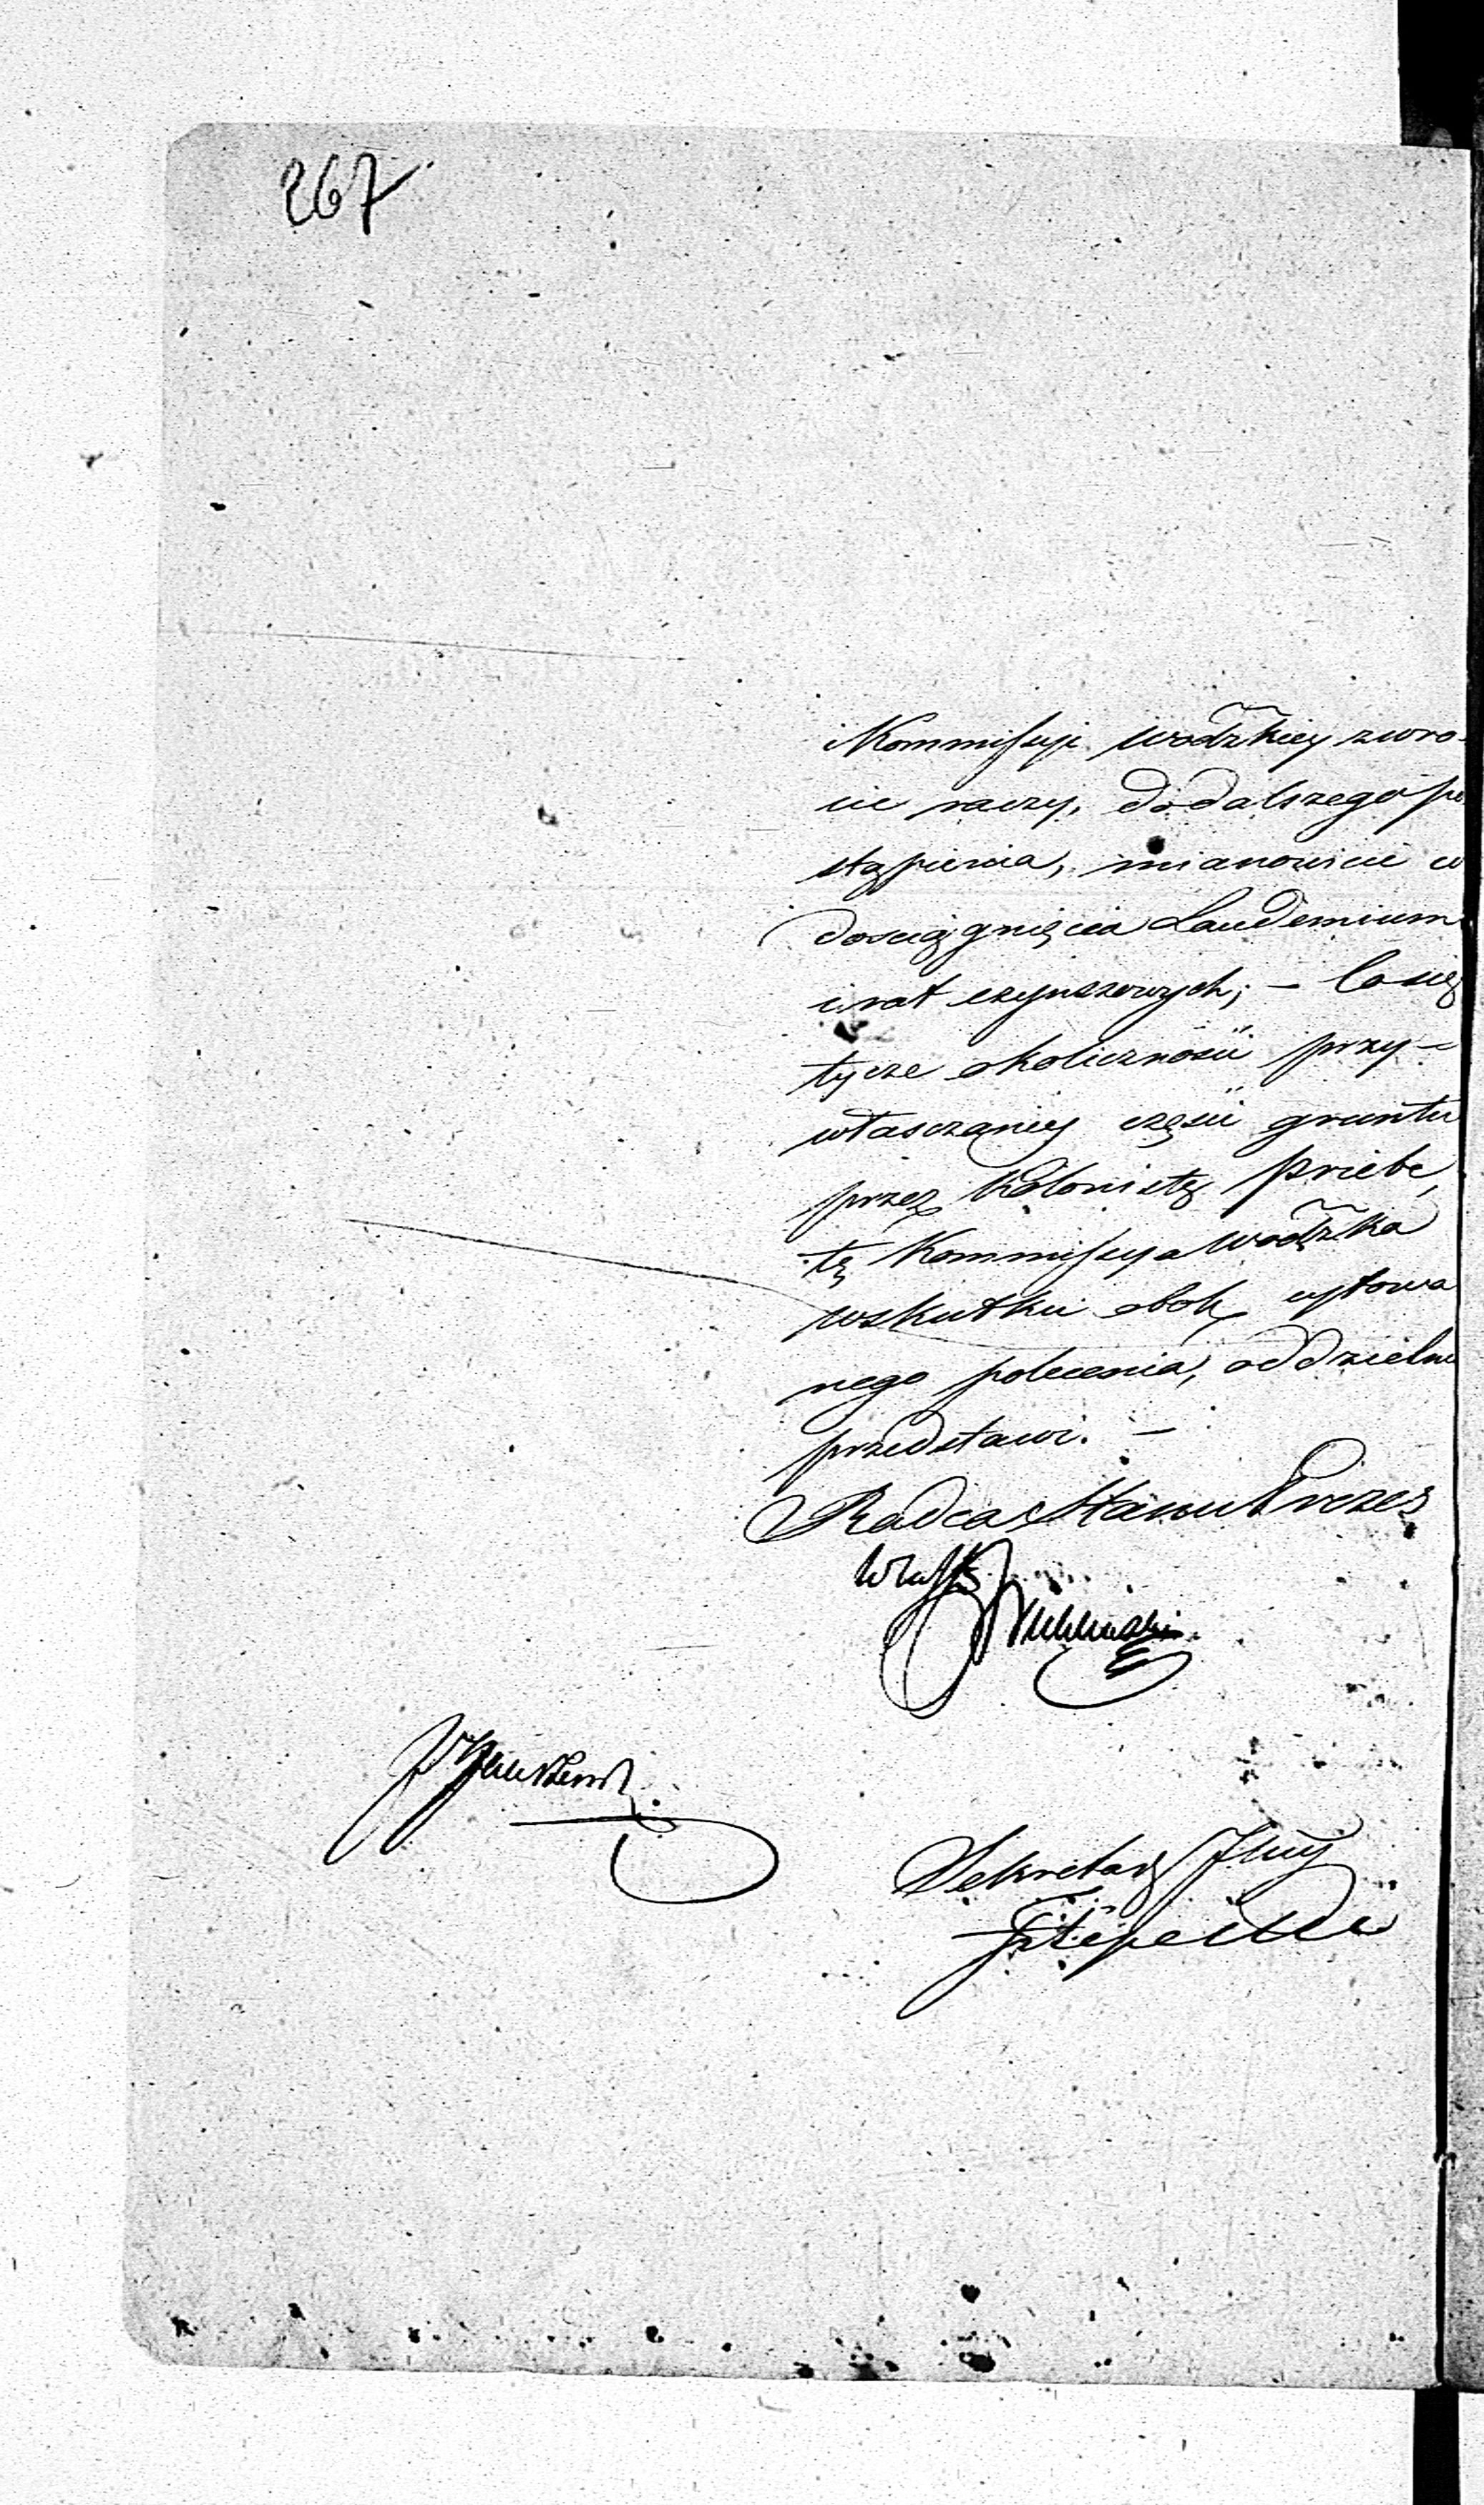 267
Kommissyi Wodzkiey zwro-
cic raczy, do dalszego po
stąpienia, mianowicie w
dosciągnięcia Laudemium
i rat czynszowych; - Co się
tycze okoliczności przy-
własczaney części gruntu
przez Kolonistę Priebe,
tę Kommissya Wodzka
wskutku obok cytowa
nego polecenia, oddzielnie
przedstawi. -
Radca Stanu Prezes
Sekretarz Jlny
Filipecki